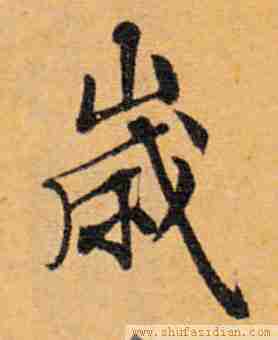 歳
www.shufazidian.com